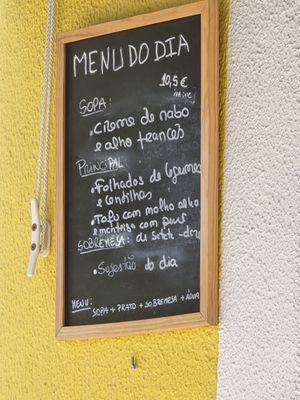 MENU DO DIA
10,5€
SOPA:
• Creme de nabo
e alho francês
PRINCIPAL
• Folhados de legumes
e lentilhas
• Tofu com molho alho
e com
SOBREMESA: de
• Sugestão do dia
MENU:
SOPA + PRATO + SOBREMESA + ÁGUA